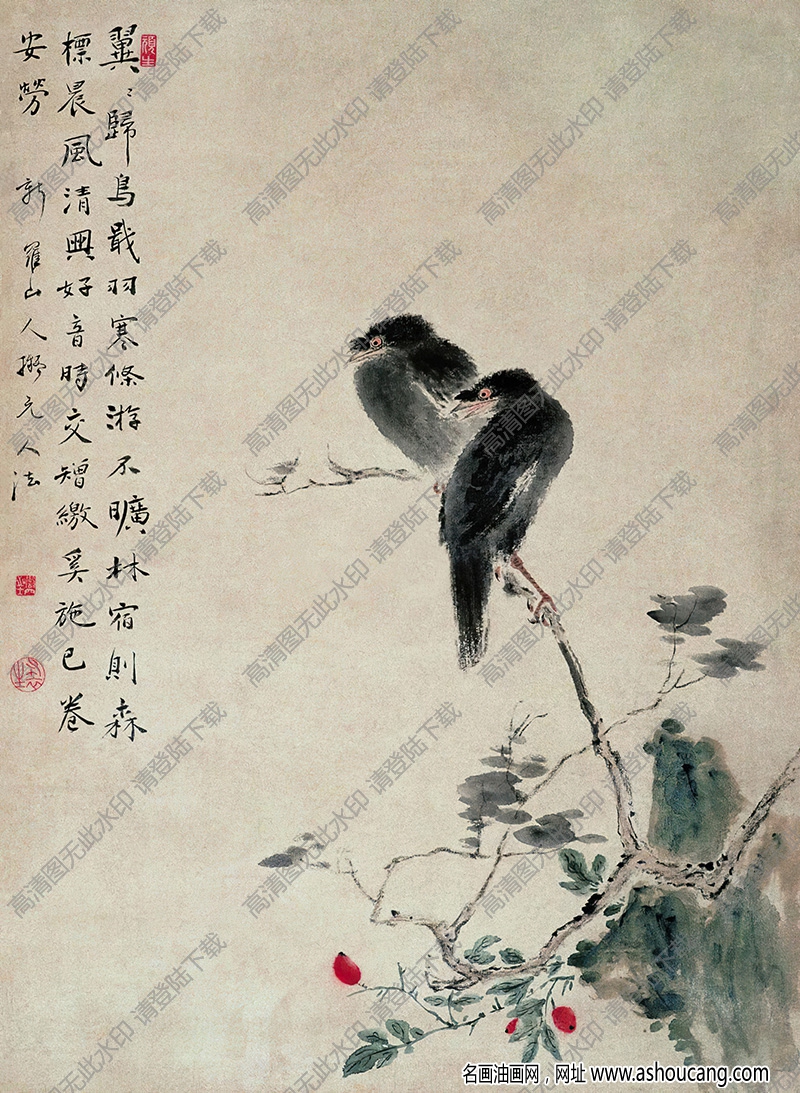 翼〻歸鳥戢羽寒條游不曠林宿則森
標晨風清興好音時交矰繳奚施已卷
安勞 新羅山人擬元人法
高清图无此水印 请登陆下载
名画油画网，网址 www.ashoucang.com